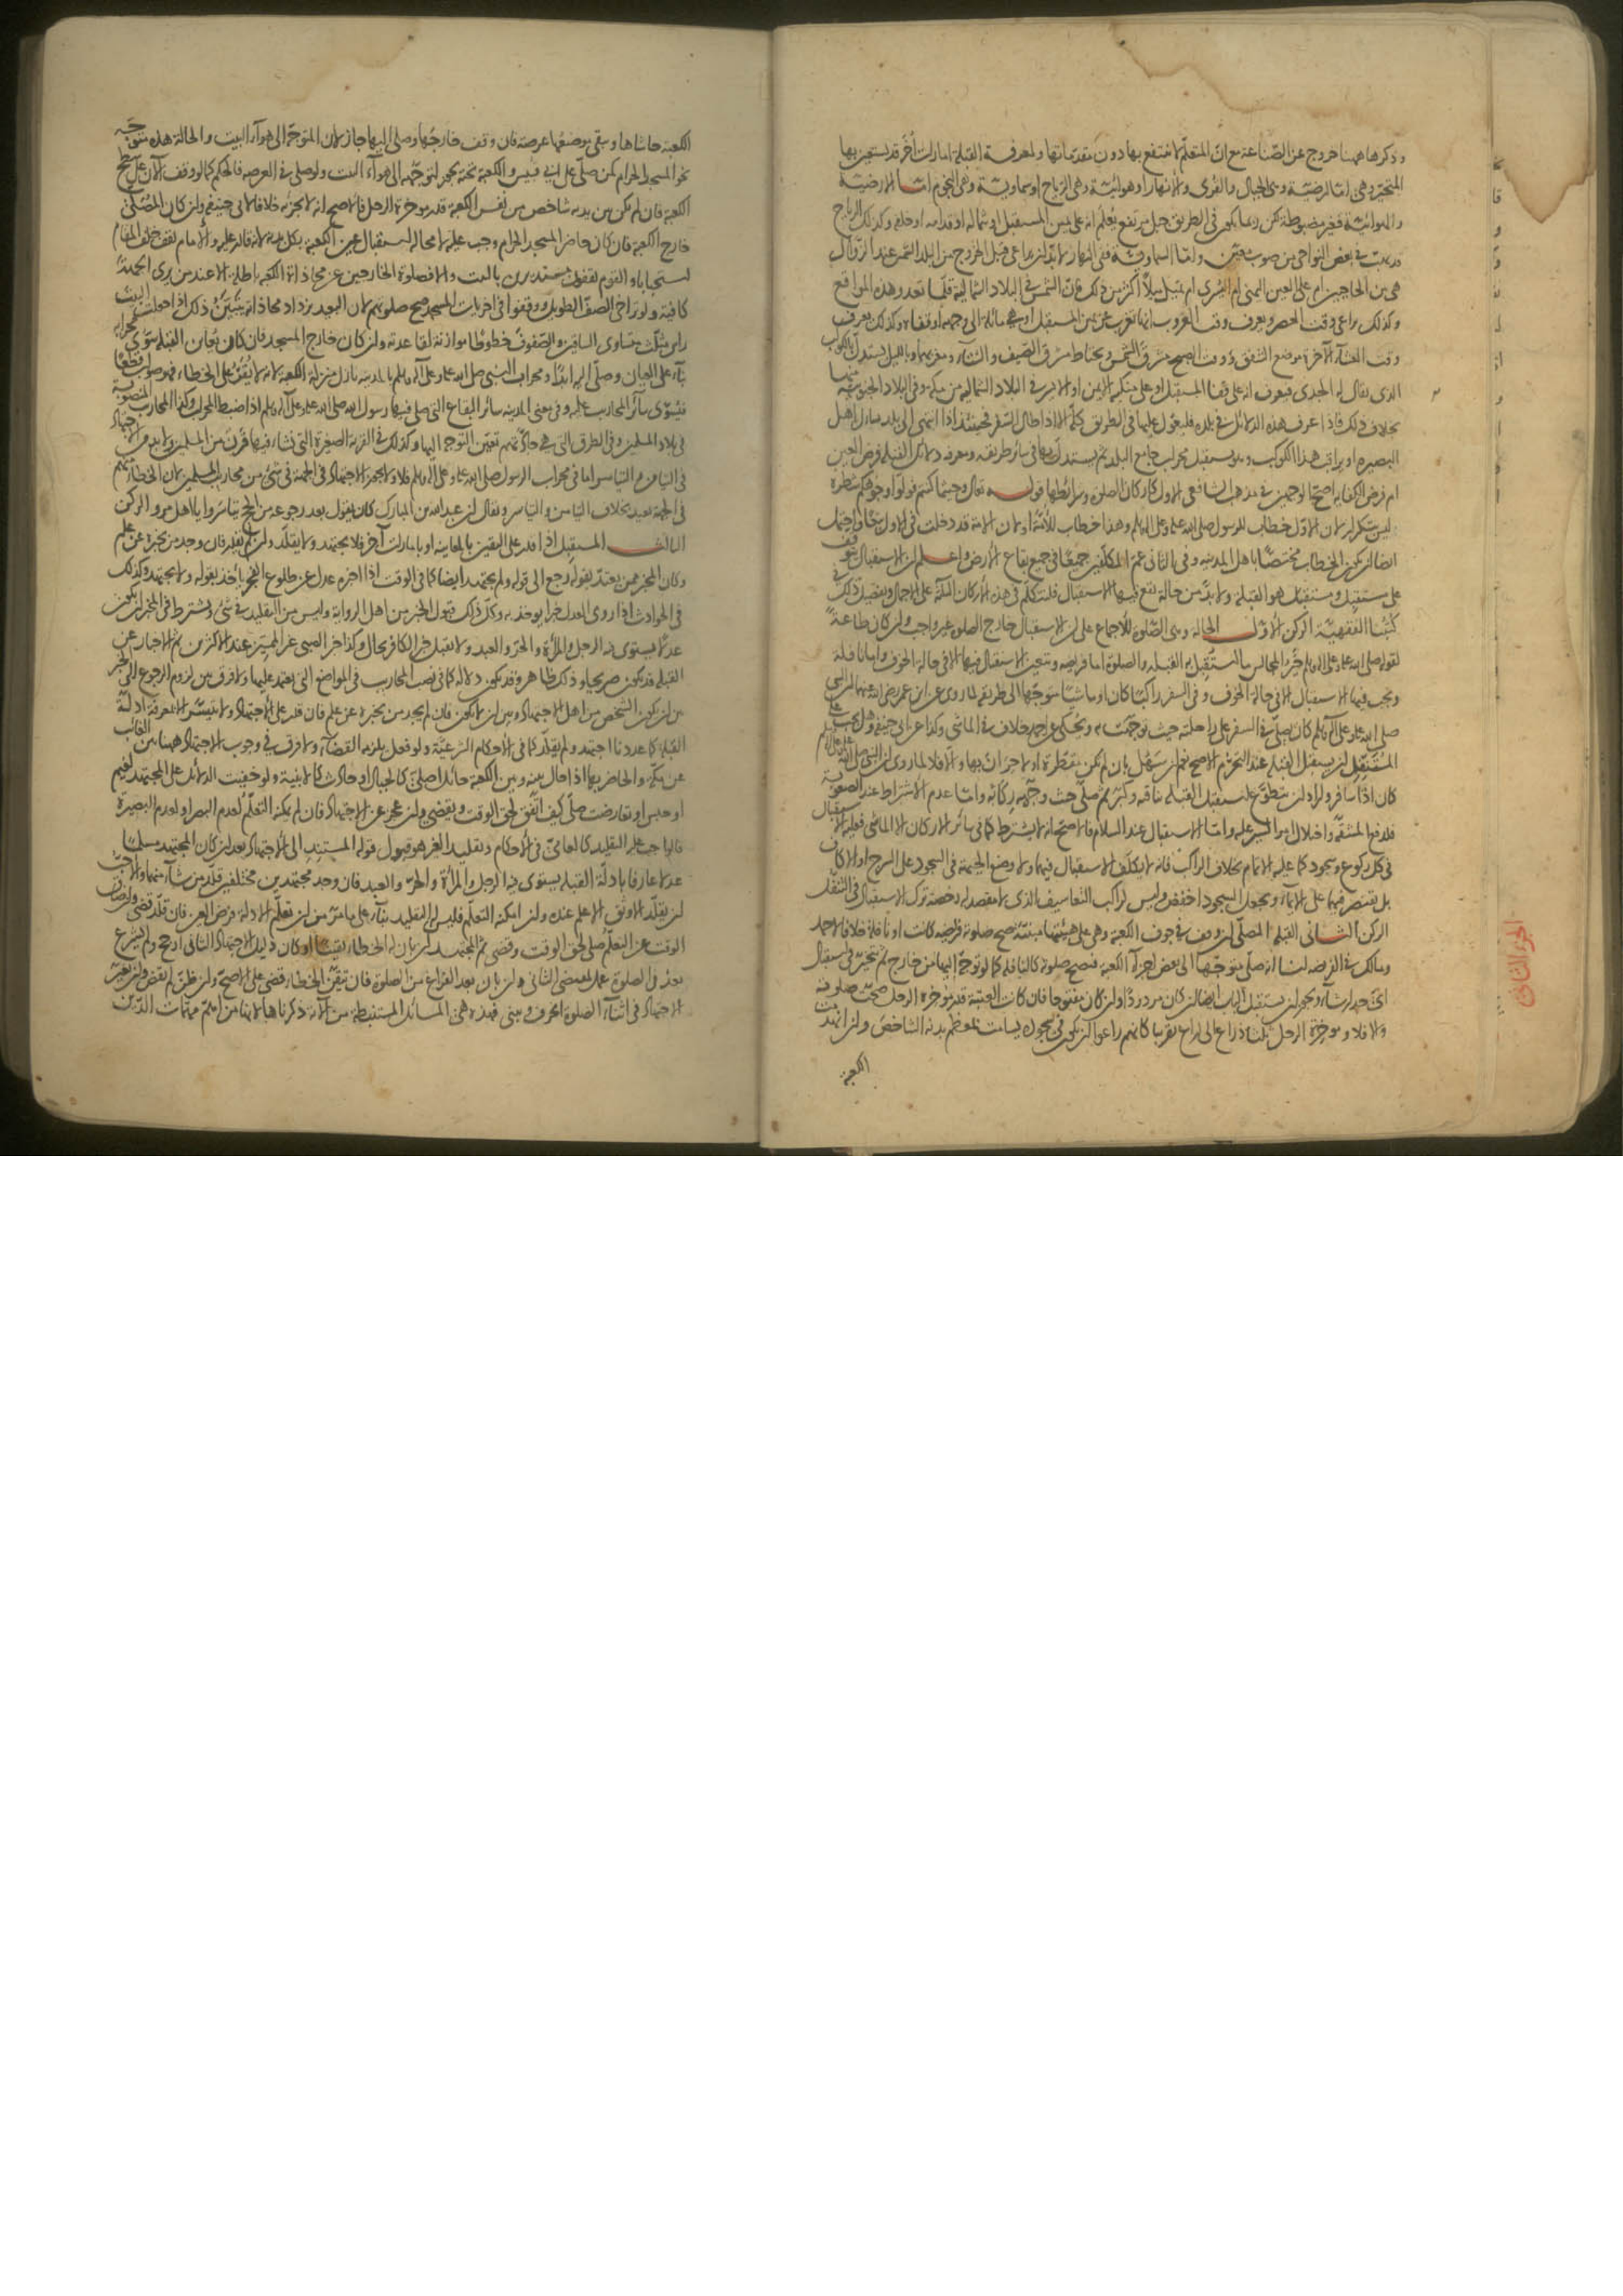 وذكرها ههنا خروج عن الصناعة مع ان المتعلم لا ينتفع بها دون مقدماتها ولمعرفة القبلة امارات أخر قد يستعين بها
المتحير وهي اما ارضية وهي الجبال والقرى والانهار او هوائية وهي الرياح او سماوية وهي النجوم اما الارضية
والهوائية فغير مضبوطة لكن ربما يكون في الطريق جبل مرتفع يعلم انه على يمين المستقبل او شماله او قدامه او خلفه وكذلك الرياح
قد يهب في بعض النواحي من صوب معين واما السماوية ففي النهار لابد ان يراعى قبل الخروج من البلد الشمس عند الزوال
هي بين الحاجبين ام على العين اليمنى ام اليسرى ام يميل ميلا اكثر من ذلك فان الشمس في البلاد الشمالية قلما تعدو هذه المواقع
وكذلك يراعى وقت العصر ويعرف وقت الغروب انها تغرب عن يمين المستقبل او هي مائلة الى وجهه او قفاه وكذلك يعرف
وقت العشاء الآخرة موضع الشفق ووقت الصبح مشرق الشمس ويحتاط مشرق الصيف والشتاء ومغربهما وبالليل يستدل بالكوكب
الذي يقال له الجدي فيعرف انه على قفا المستقبل او على منكبه الايمن او الايسر في البلاد الشمالية من مكة وفي البلاد الجنوبية منها
بخلاف ذلك فاذا عرف هذه الدلائل في بلده فليعول عليها في الطريق كله الا اذا طال السفر فحينئذ اذا انتهى الى بلد سأل اهل
البصيرة او يراقب هذا الكوكب وهو مستقبل محراب جامع البلد ثم يستدل بها في سائر طريقه ومعرفة دلائل القبلة فرض العين
ام فرض الكفاية اصح الوجهين في مذهب الشافعي الاول كاركان الصلوة وشرائطها قوله تعالى وحيثما كنتم فولوا وجوهكم شطره
ليس بتكرار لان الاول خطاب للرسول صلى الله عليه وعلى آله وسلم وهذا خطاب للامة او لان الامة قد دخلت في الاول تبعا واحتمل
ايضا ان يكون الخطاب مختصا باهل المدينة وفي الثاني عم المكلفين جميعا في جميع بقاع الارض واعلم ان الاستقبال يتوقف
على مستقبل ومستقبل هو القبلة ولا بد من حالة تقع فيها الاستقبال فلنتكلم في هذه الاركان الثلثة على الاجمال وتفصيل ذلك في
كتبنا الفقهية الركن الاول الحالة وهي الصلوة للاجماع على ان الاستقبال خارج الصلوة غير واجب وان كان طاعة
لقوله صلى الله عليه وعلى آله وسلم خير المجالس ما استقبل به القبلة والصلوة اما فريضة ويتعين الاستقبال فيها الا في حالة الخوف واما نافلة
ويجب فيها الاستقبال الا في حالة الخوف وفي السفر راكبا كان او ماشيا متوجها الى طريقه لما روى عن ابن عمر رضي الله عنهما ان النبي
صلى الله عليه وعلى آله وسلم كان يصلي في السفر على راحلته حيث توجهت به ويحكى عن احمد خلاف في الماشي وكذا عن ابي حنيفة وهل يجب على
المتنفل ان يستقبل القبلة عند التحرم الاصح نعم ان سهل بان لم يكن مقطرة او لا حران بها والا فلا لما روى ان النبي صلى الله عليه وعلى آله وسلم
كان اذا سافر واراد ان يتطوع استقبل القبلة بناقته وكبر ثم صلى حيث وجهه ركابه واما عدم الاشتراط عند الصعوبة
فلدفع المشقة واختلال امر السير عليه واما الاستقبال عند السلام فالاصح انه لا يشترط كما في سائر الاركان الا الماشي فعليه الاستقبال
في كل ركوع وسجود كما عليه الاتمام بخلاف الراكب فانه لا يكلف الاستقبال فيهما ولا وضع الجبهة في السجود على السرج او الاكاف
بل يقتصر فيهما على الايماء ويجعل السجود اخفض وليس لراكب التعاسيف الذي لا مقصد له رخصة ترك الاستقبال في التنفل
الركن الثاني القبلة المصلي ان وقف في جوف الكعبة وهي على هيئتها مبنية تصح صلوته فريضة كانت او نافلة خلافا لاحمد
ومالك في الفريضة لنا انه صلى متوجها الى بعض اجزاء الكعبة فتصح صلوته كالنافلة كما لو توجه اليها من خارج ثم يتخير في استقبال
اي جدار شاء ويجوز ان يستقبل الباب ايضا ان كان مردودا وان كان مفتوحا فان كانت العتبة قدر مؤخرة الرحل صحت صلوته
والا فلا ومؤخرة الرحل ثلثا ذراع الى ذراع تقريبا كانهم راعوا ان يكون في سجوده يسامت بمعظم بدنه الشاخص وان انهدمت
الكعبة
الجزء الثاني
الكعبة حاشاها وبقي موضعها عرصة فان وقف خارجها وصلى اليها جاز لان المتوجه الى هواء البيت والحالة هذه متوجه
نحو المسجد الحرام كمن صلى على ابي قبيس والكعبة تحته يجوز لتوجهه الى هواء البيت ولو صلى في العرصة فالحكم كما لو وقف الآن على سطح
الكعبة فان لم يكن بين يديه شاخص من نفس الكعبة قدر مؤخرة الرحل فالاصح انه لا يجزيه خلافا لابي حنيفة وان كان المصلي
خارج الكعبة فان كان حاضر المسجد الحرام وجب عليه لا محالة استقبال عين الكعبة بكل بدنه لانه قادر عليه والامام يقف خلف المقام
استحبابا والقوم يقفون مستديرين بالبيت والا فصلوة الخارجين عن محاذاة الكعبة باطلة الا عند من يرى الجهة
كافية ولو تراخى الصف الطويل ووقفوا في اخريات المسجد صح صلوتهم لان البعيد يزداد محاذاة يتبين ذلك اذا جعلت البيت
راس مثلث متساوي الساقين والصفوف خطوطا موازنة لقاعدته وان كان خارج المسجد فان كان يعاين القبلة سوى محرابه
بناء على العيان وصلى اليه ابدا ومحراب النبي صلى الله عليه وعلى آله وسلم بالمدينة نازل منزلة الكعبة لانه لا يقر على الخطاء فهو صواب قطعا
فيسوى سائر المحاريب عليه وفي معنى المدينة سائر البقاع التي صلى فيها رسول الله صلى الله عليه وعلى آله وسلم اذا ضبط المحراب وكذا المحاريب المنصوبة
في بلاد المسلمين وفي الطرق التي هي جادتهم يتعين التوجه اليها وكذلك في القرية الصغيرة التي نشأ فيها قرن من المسلمين ولابد من الاجتهاد
في التيامن والتياسر اما في محراب الرسول صلى الله عليه وعلى آله وسلم فلا ولا يجوز الاجتهاد في الجهة في شيء من محاريب المسلمين لان الخطأ منهم
في الجهة بعيد بخلاف التيامن والتياسر ويقال ان عبد الله بن المبارك كان يقول بعد رجوعه من الحج تياسروا يا اهل مرو الركن
الثالث المستقبل اذا قدر على اليقين بالمعاينة او بامارات أخر فلا يجتهد ولا يقلد وان لم يقدر فان وجد من يخبره عن علم
وكان المخبر ممن يعتد بقوله رجع الى قوله ولم يجتهد ايضا كما في الوقت اذا اخبره عدل عن طلوع الفجر يأخذ بقوله ولا يجتهد وكذلك
في الحوادث اذا روى العدل خبرا يؤخذ به وكل ذلك قبول الخبر من اهل الرواية وليس من التقليد في شيء ويشترط في المخبر ان يكون
عدلا يستوي فيه الرجل والمرأة والحر والعبد ولا يقبل خبر الكافر بحال وكذا خبر الصبي غير المميز عند الاكثرين ثم الاخبار عن
القبلة قد يكون صريحا وذلك ظاهر وقد يكون دلالة كما في نصب المحاريب في المواضع التي يعتمد عليها ولا فرق بين لزوم الرجوع الى الخبر
بين ان يكون الشخص من اهل الاجتهاد وبين ان لا يكون فان لم يجد من يخبره عن علم فان قدر على الاجتهاد ولا يتيسر الا بمعرفة ادلة
القبلة كما عددنا اجتهد ولم يقلد كما في الاحكام الشرعية ولو فعل يلزمه القضاء ولا فرق في وجوب الاجتهاد ههنا بين الغائب
عن مكة والحاضر بها اذا حال بينه وبين الكعبة حائل اصلي كالجبال او حادث كالابنية ولو خفيت الدلائل على المجتهد لغيم
او حبس او تعارضت صلى كيف اتفق لحق الوقت ويقضي وان عجز عن الاجتهاد فان لم يمكنه التعلم لعدم البصر او لعدم البصيرة
فالواجب عليه التقليد كالعامي في الاحكام وتقليد الغير هو قبول قوله المستند الى الاجتهاد بعد ان كان المجتهد مسلما
عدلا عارفا بادلة القبلة يستوي فيه الرجل والمرأة والحر والعبد فان وجد مجتهدين مختلفين قلد من شاء منهما والاحب
ان يقلد الاوثق الاعلم عنده وان امكنه التعلم فليس له التقليد بناء على ما مر من ان تعلم الادلة فرض العين فان قلد قضى وان ضاق
الوقت عن التعلم صلى لحق الوقت وقضى ثم المجتهد ان بان له الخطاء يقينا او كان دليل الاجتهاد الثاني ارجح ولم يشرع
بعد في الصلوة عمل بمقتضى الثاني وان بان بعد الفراغ من الصلوة فان تيقن الخطاء قضى على الاصح وان ظن لم يقض وان تغير
الاجتهاد في اثناء الصلوة انحرف ويبني فهذه هي المسائل المستنبطة من الآية ذكرناها لانها من اهم مهمات الدين